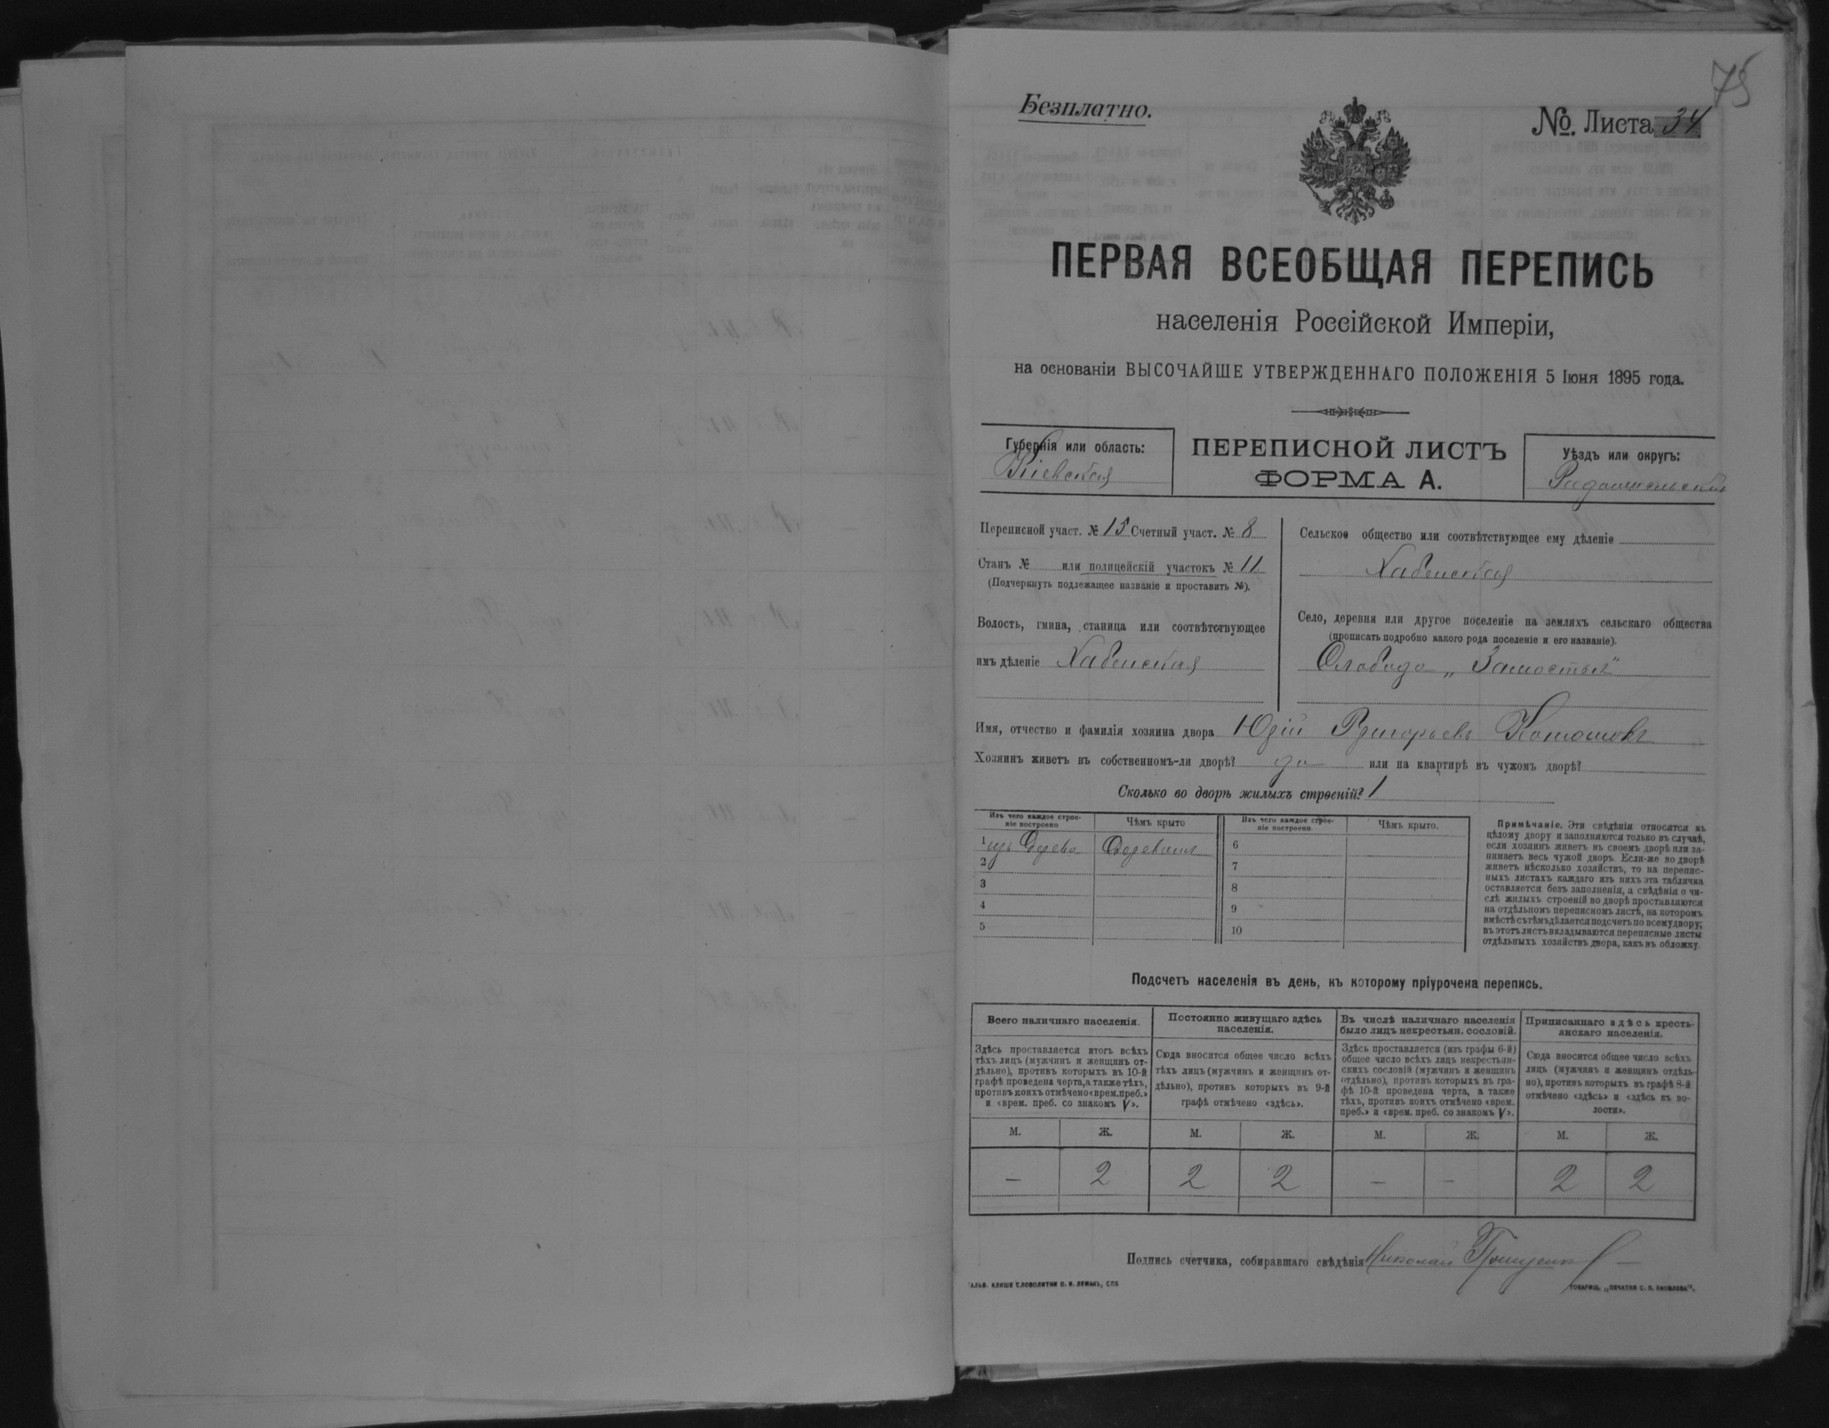 75
Безплатно.
№. Листа 34
ПЕРВАЯ ВСЕОБЩАЯ ПЕРЕПИСЬ
населенія Россійской Имперіи,
на основаніи ВЫСОЧАЙШЕ УТВЕРЖДЕННАГО ПОЛОЖЕНІЯ 5 Іюня 1895 года.
Губернія или область:
Кіевская
ПЕРЕПИСНОЙ ЛИСТЪ
ФОРМА А.
Уѣздъ или округъ:
Радомысльскій
Переписной участ. № 15 Счетный участ. № 8
Станъ № или полицейскій участокъ № 11
(Подчеркнуть подлежащее названіе и проставить №).
Волость, гмина, станица или соотвѣтствующее
имъ дѣленіе Хабенская
Сельское общество или соотвѣтствующее ему дѣленіе
Хабенская
Село, деревня или другое поселеніе на земляхъ сельскаго общества
(прописать подробно какого рода поселеніе и его названіе).
Слобода „Замостья"
Имя, отчество и фамилія хозяина двора
Хозяинъ живетъ въ собственномъ-ли дворѣ? да или на квартирѣ въ чужомъ дворѣ?
Сколько во дворѣ жилыхъ строеній? 1
Изъ чего каждое строе-
ніе построено
Чѣмъ крыто
Изъ чего каждое строе-
ніе построено.
Чѣмъ крыто.
1 изъ дерева
2
3
4
5
6
7
8
9
10
Примѣчаніе. Эти свѣдѣнія относятся къ
цѣлому двору и заполняются только въ случаѣ,
если хозяинъ живетъ въ своемъ дворѣ или за-
нимаетъ весь чужой дворъ. Если-же во дворѣ
живетъ нѣсколько хозяйствъ, то на перепис-
ныхъ листахъ каждаго изъ нихъ эта табличка
оставляется безъ заполненія, а свѣдѣнія о чи-
слѣ жилыхъ строеній во дворѣ проставляются
на отдѣльномъ переписномъ листѣ, на которомъ
вмѣстѣ съ тѣмъ дѣлается подсчетъ по всему двору;
въ этотъ листъ вкладываются переписные листы
отдѣльныхъ хозяйствъ двора, какъ въ обложку.
Подсчетъ населенія въ день, къ которому пріурочена перепись.
Всего наличнаго населенія.
Постоянно живущаго здѣсь
населенія.
Въ числѣ наличнаго населенія
было лицъ некрестьян. сословій.
Приписаннаго здѣсь кресть-
янскаго населенія.
Здѣсь проставляется итогъ всѣхъ
тѣхъ лицъ (мужчинъ и женщинъ от-
дѣльно), противъ которыхъ въ 10-й
графѣ проведена черта, а также тѣхъ,
противъ коихъ отмѣчено «врем. преб.»
и «врем. преб. со знакомъ V».
Сюда вносится общее число всѣхъ
тѣхъ лицъ (мужчинъ и женщинъ от-
дѣльно), противъ которыхъ въ 9-й
графѣ отмѣчено «здѣсь».
Здѣсь проставляется (изъ графы 6-й)
общее число всѣхъ лицъ некрестьян-
скихъ сословій (мужчинъ и женщинъ
отдѣльно), противъ которыхъ въ гра-
фѣ 10-й проведена черта, а также
тѣхъ, противъ коихъ отмѣчено «врем.
преб.» и «врем. преб. со знакомъ V».
Сюда вносится общее число всѣхъ
лицъ (мужчинъ и женщинъ отдѣль-
но), противъ которыхъ въ графѣ 8-й
отмѣчено «здѣсь» и «здѣсь въ во-
лости».
М. Ж. М. Ж. М. Ж. М. Ж.
— 2 2 2 — — 2 2
Подпись счетчика, собиравшаго свѣдѣнія Николай